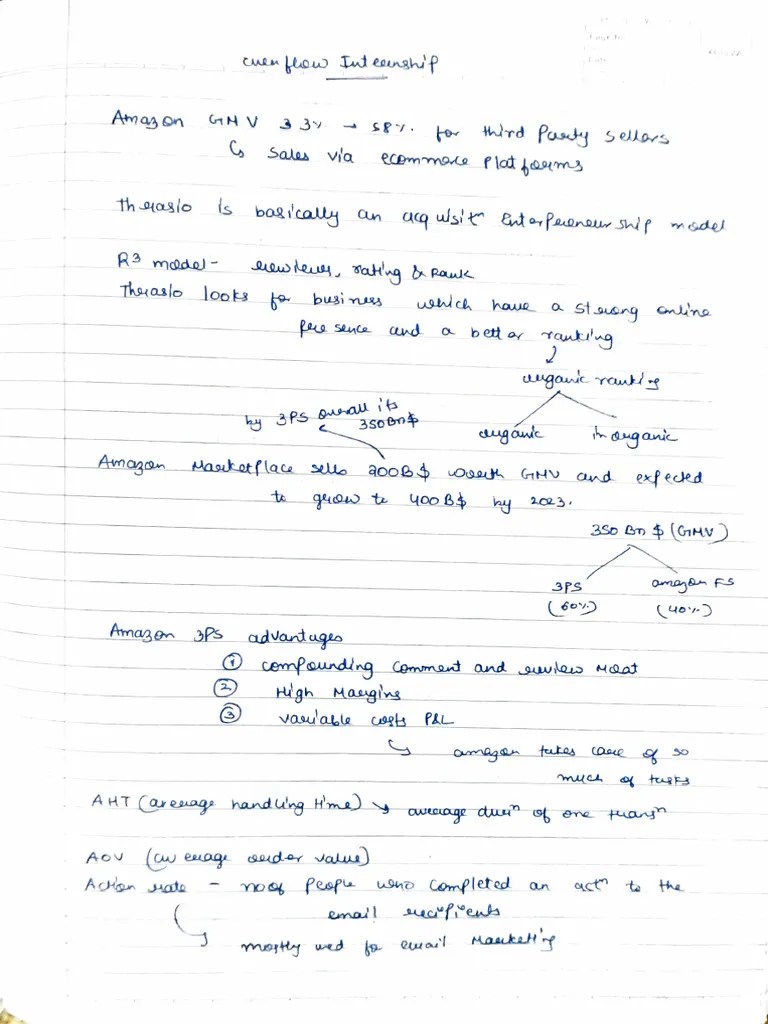 Internship
Amazon GMV 33% → 58% for third Party sellers
↳ Sales via ecommerce Platforms
Therasio is basically an acquisitⁿ Enterpreneurship model
R3 model - reviews, rating & Rank
Therasio looks for business which have a strong online
presence and a better ranking
organic ranking
by 3PS overall its
350Bn$
organic inorganic
Amazon Marketplace sells 200B$ worth GMV and expected
to grow to 400B$ by 2023.
350 Bn $ (GMV)
3PS amazon FS
(60%) (40%)
Amazon 3PS advantages
① Compounding Comment and review Moat
② High Margins
③ variable costs P&L
↳ amazon takes care of so
much of tasks
AHT (average handling time) ↘ average durⁿ of one transⁿ
AOV (average order value)
Action rate - no of People who Completed an actⁿ to the
email recipients
mostly used for email Marketing